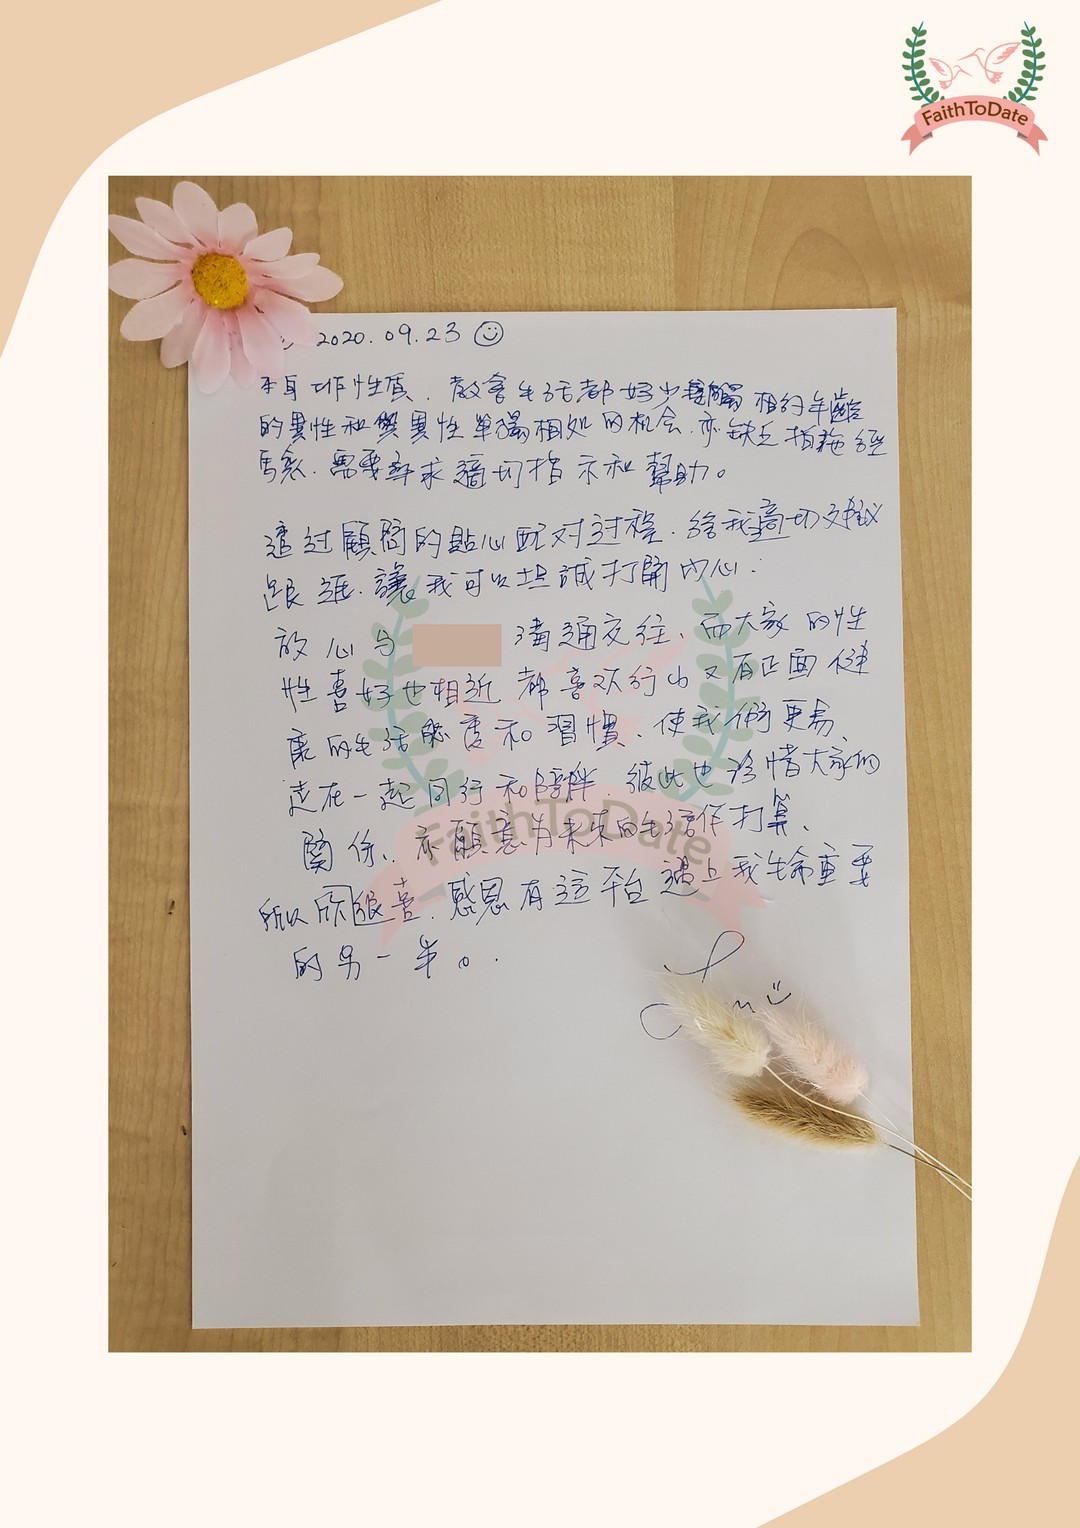 FaithToDate
2020.09.23
本身工作性質，教會生活都好少接觸相約年齡
的異性和與異性單獨相処的机会，亦缺乏拍拖經
馬僉，需要尋求適切指示和幫助。
透过顧問的貼心配对过程，給我適切文献
跟進，讓我可以坦誠打開內心．
放心与 溝通交往、而大家的性
性喜好也相近 都喜欢行山又有正面健
康的生活態度和習慣、使我們更易、
走在一起同行和陪伴，彼此也珍惜大家的
関係、亦願意为未來的生活作打算、
所以 很喜，感恩有這平台遇上我生命重要
的另一半。.
FaithToDate